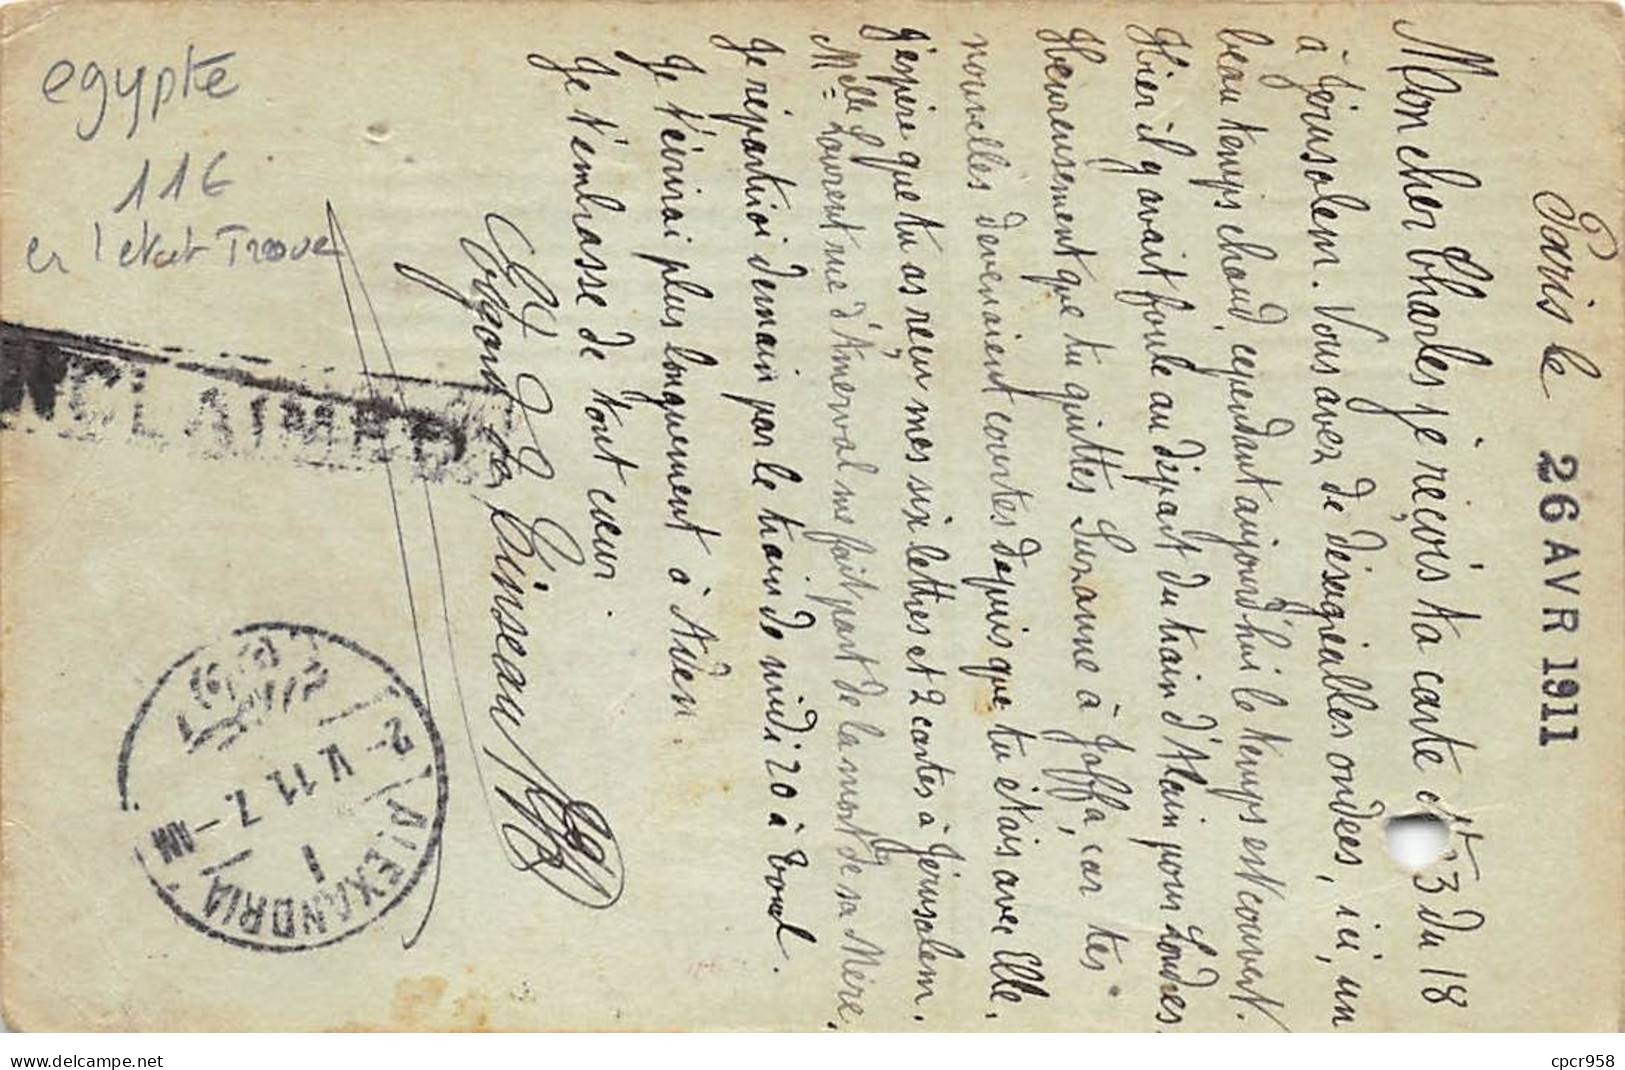 Paris le 26 AVR 1911
Mon cher Charles je reçois ta carte N° 3 du 18
à Jérusalem. Vous avez de désagréables ondées, ici, un
beau temps chaud, cependant aujourd'hui le temps est couvert.
Hier il y avait foule au départ du train d'Alain pour Londres.
Heureusement que tu quittes Suzanne à Jaffa, car tes
nouvelles devenaient courtes depuis que tu étais avec Elle.
J'espère que tu as reçu mes six lettres et 2 cartes à Jérusalem.
Melle Laurent rue d'Amerval me fait part de la mort de sa Mère.
Je réparti demain par le train de midi 20 à
Je t'écrirai plus longuement à
Je t'embrasse de tout cœur
egypte
11€
en l'etat Trove
CLAIMED
ALEXANDRIA
2-V.11.7.-AM
1
cpcr958